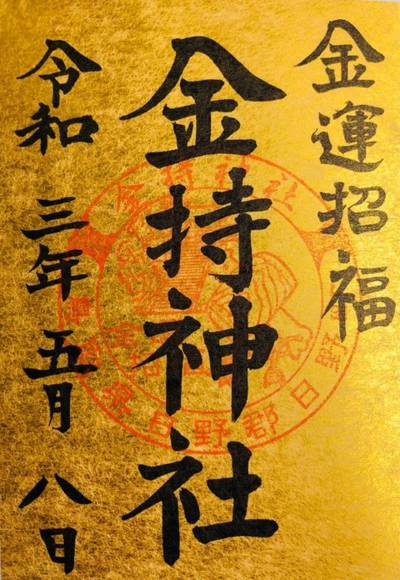 金運招福
金持神社
令和三年五月八日
金持神社
日野郡